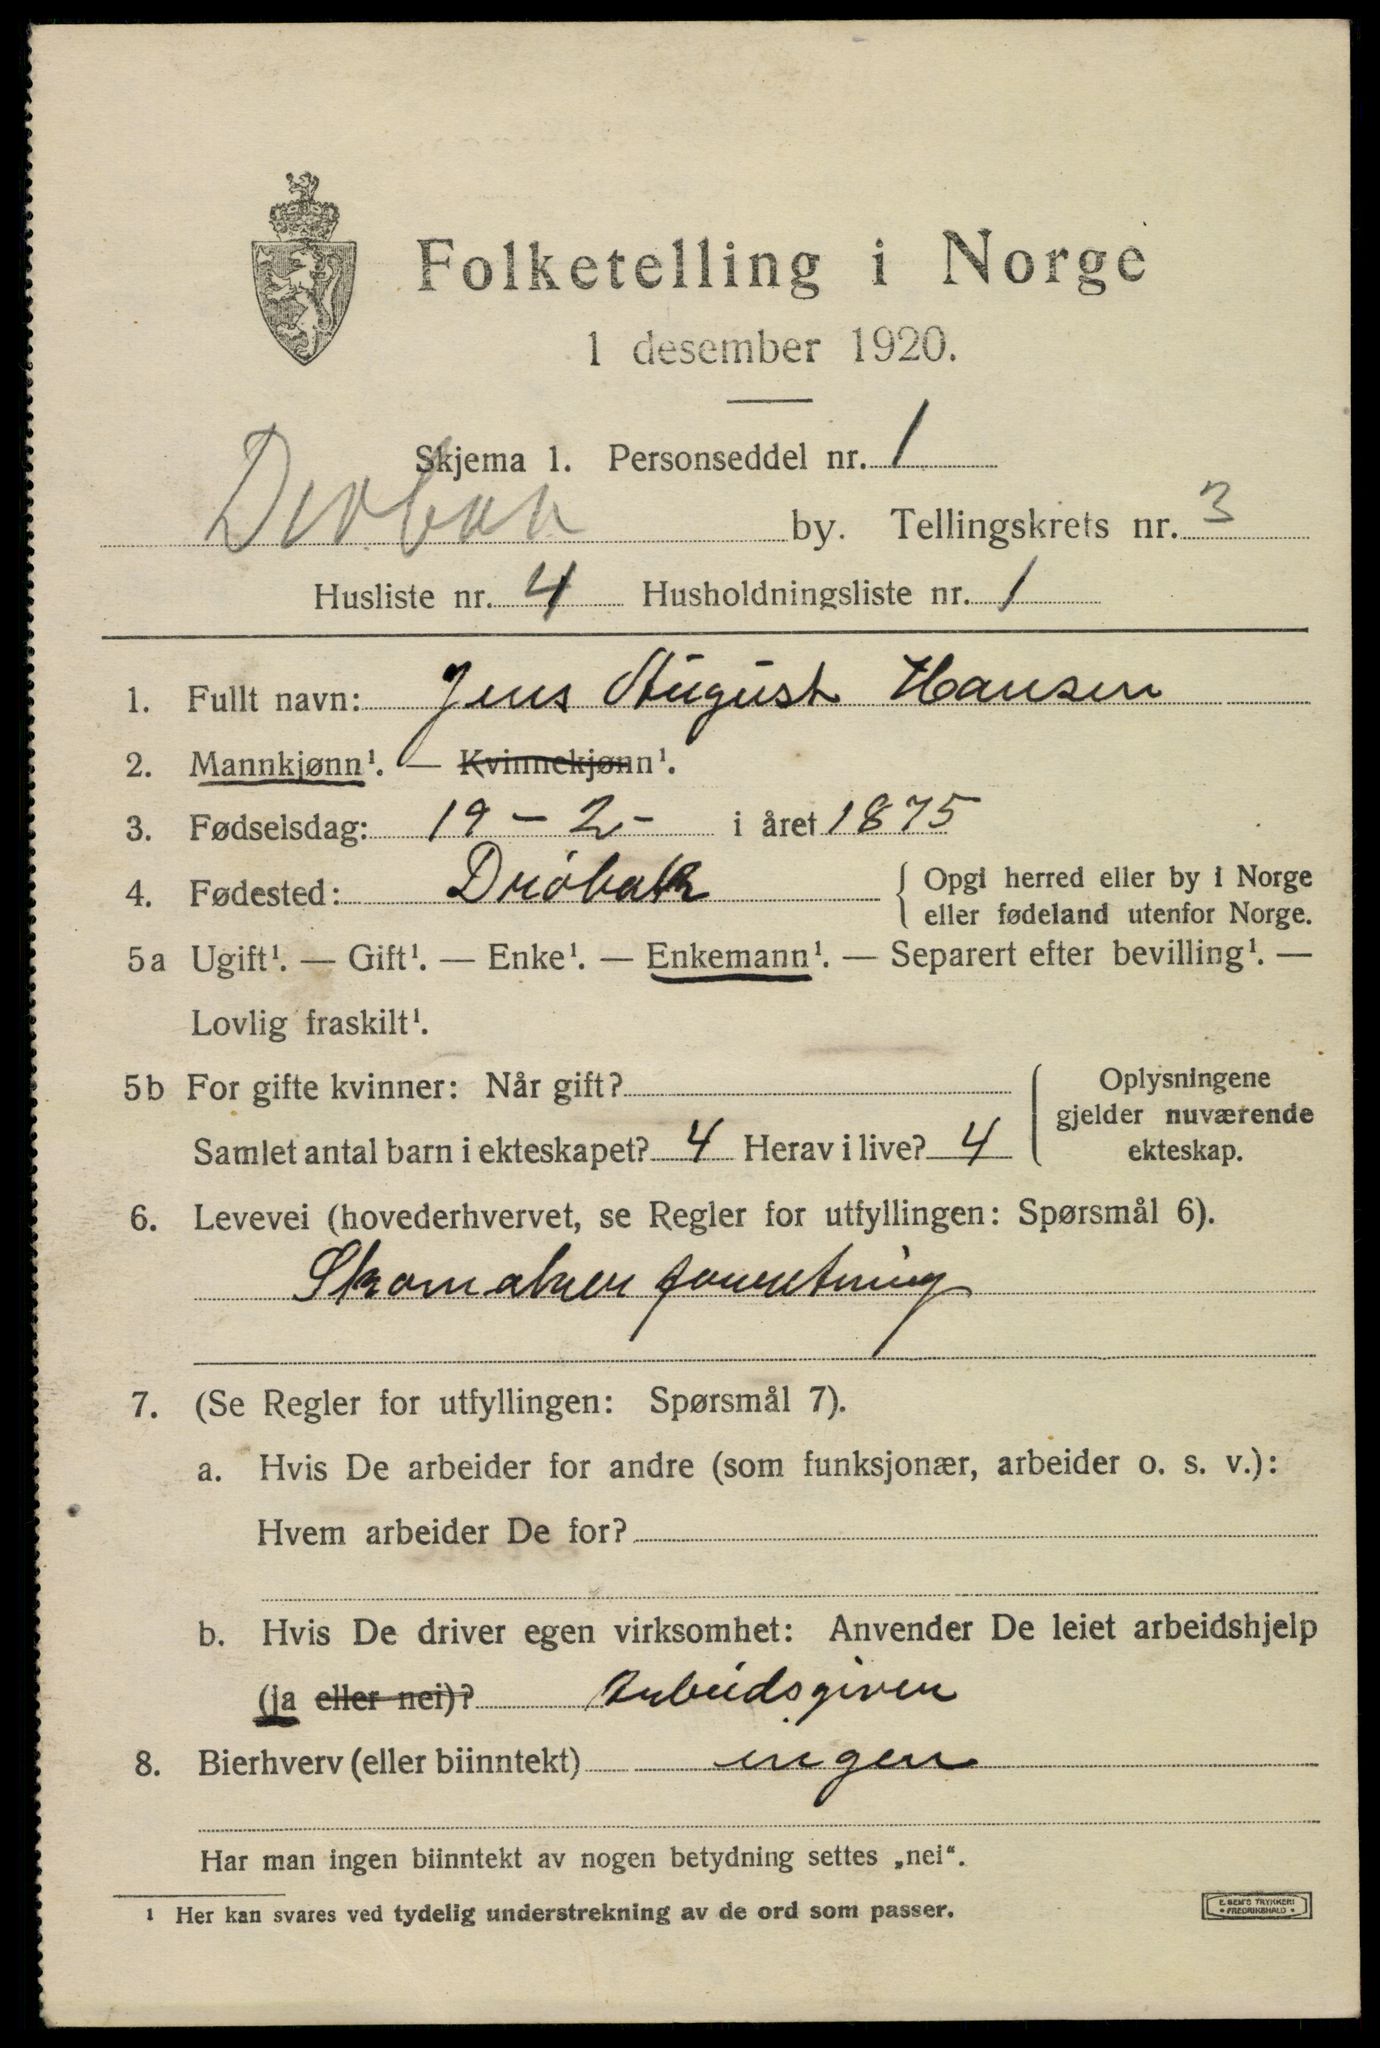 Folketelling i Norge
1 desember 1920.
Skjema 1. Personseddel nr. 1
Drøbak by. Tellingskrets nr. 3
Husliste nr. 4 Husholdningsliste nr. 1
1. Fullt navn: Jens August Hansen
2. Mannkjønn¹. — Kvinnekjønn¹.
3. Fødselsdag: 19 - 2 - i året 1875
4. Fødested: Drøbak { Opgi herred eller by i Norge
eller fødeland utenfor Norge.
5a Ugift¹. — Gift¹. — Enke¹. — Enkemann¹. — Separert efter bevilling¹. —
Lovlig fraskilt¹.
5b For gifte kvinner: Når gift?
Samlet antal barn i ekteskapet? 4 Herav i live? 4
Oplysningene
gjelder nuværende
ekteskap.
6. Levevei (hovederhvervet, se Regler for utfyllingen: Spørsmål 6).
Skomaker forretning
7. (Se Regler for utfyllingen: Spørsmål 7).
a. Hvis De arbeider for andre (som funksjonær, arbeider o. s. v.):
Hvem arbeider De for?
b. Hvis De driver egen virksomhet: Anvender De leiet arbeidshjelp
(ja eller nei)? Arbeidsgiver
8. Bierhverv (eller biinntekt) ingen
Har man ingen biinntekt av nogen betydning settes „nei“.
¹ Her kan svares ved tydelig understrekning av de ord som passer.
E. SEM'S TRYKKERI
• FREDRIKSHALD •